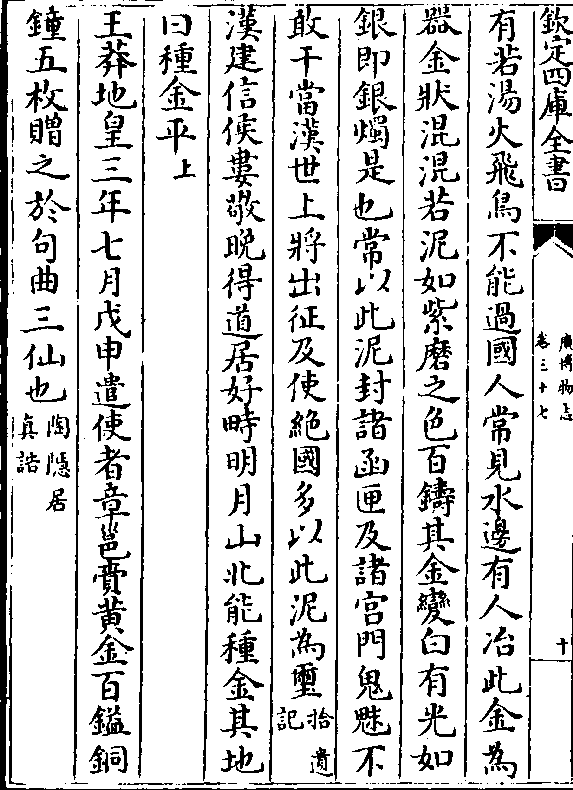 欽定四庫全書
廣博物志
卷三十七
十
有若湯火飛鳥不能過國人常見水邊有人冶此金為
器金狀混混若泥如紫磨之色百鑄其金變白有光如
銀即銀燭是也常以此泥封諸函匣及諸宮門鬼魅不
敢干當漢世上將出征及使絶國多以此泥為璽拾遺記
漢建信侯婁敬晚得道居好畤明月山北能種金其地
曰種金平上
王莽地皇三年七月戊申遣使者章邕賫黄金百鎰銅
鐘五枚贈之於句曲三仙也陶隱居真誥